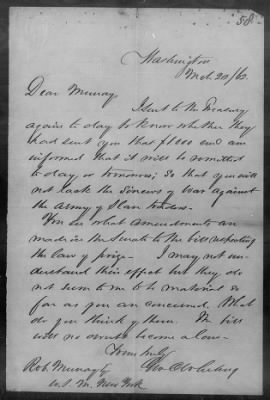 58
Washington
Mch. 20/62.
Dear Murray
I sent to the Treasury
again to day to know whether they
had sent you that $1000 and am
informed that it will be remitted
to day or tomorrow; so that you will
not lack the sinews of war against
the Army of Slave traders.
You see what amendments are
made in the Senate to the bill respecting
the law of prize. I may not un-
derstand their effect but they do
not seem to me to be material so
far as you are concerned. What
do you think of them. The bill
will no doubt become a law.
Yours truly
Geo C Whiting
Rob. Murray
U.S. M. New York